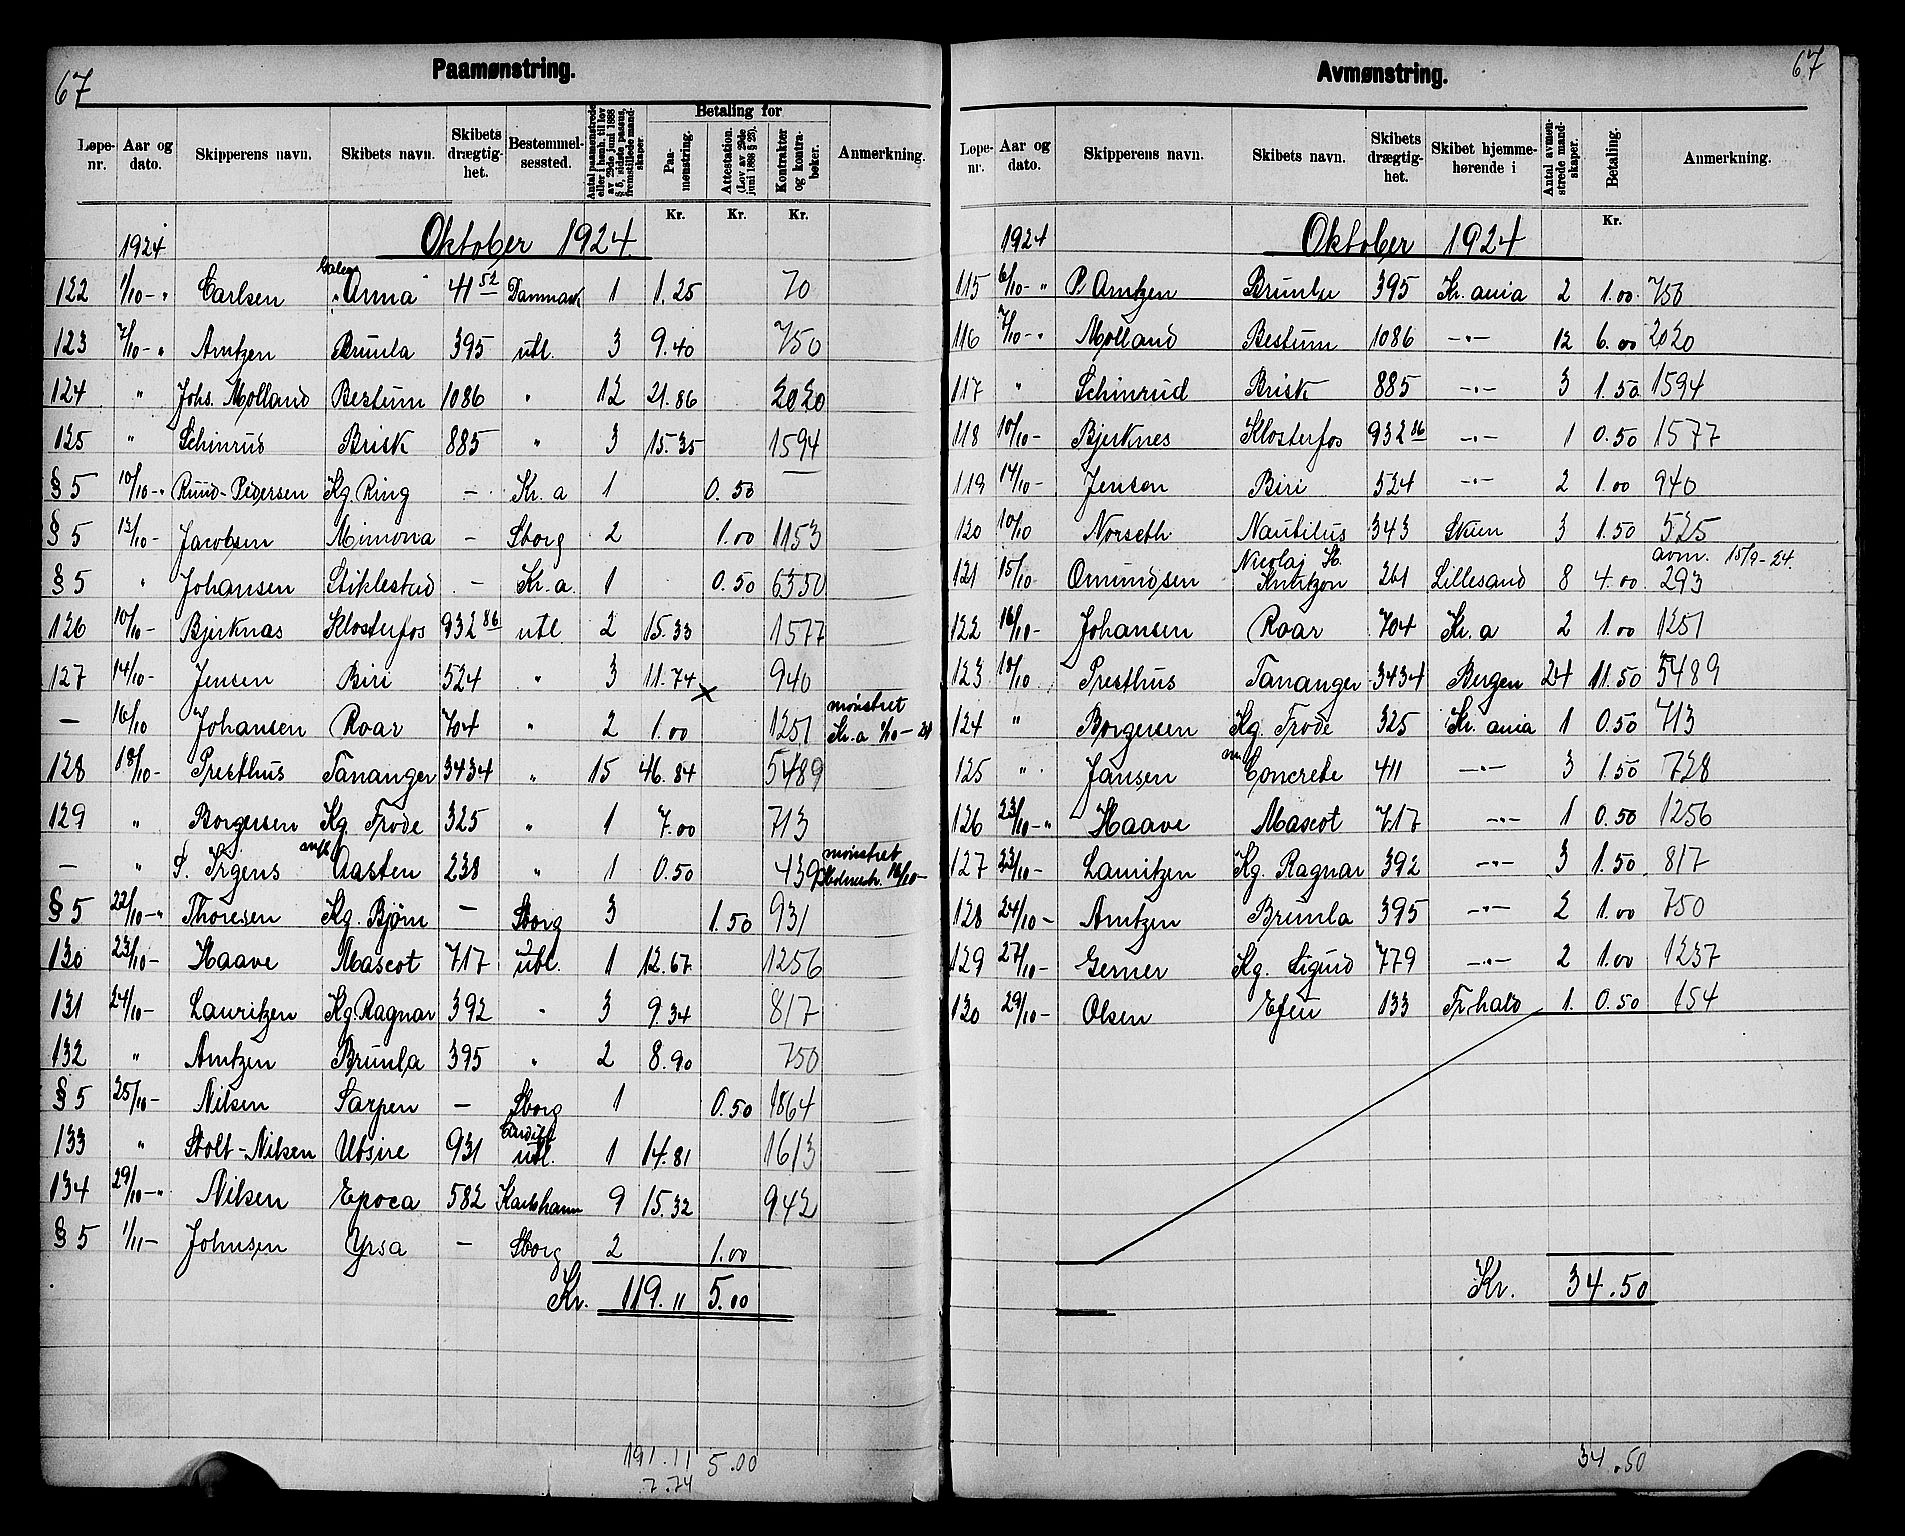 67
Paamønstring.
Løpe-nr. | Aar og dato. | Skipperens navn. | Skibets navn. | Skibets drægtig-het. | Bestemmel-sessted. | Antal paamønstrede eller i henh. til lov av 29de juni 1888 § 5, sidste passus, fremstillede mand-skaper. | Betaling for | Paa-mønstring. | Attestation. (Lov av 29de juni 1888 § 25). | Kontrakter og kontra-bøker. | Anmerkning.
Kr. | Kr. | Kr.
1924 Oktober 1924.
122 1/10-" Carlsen "Anna" 41 52 Danmark 1 1.25 70
123 7/10-" Arntzen Brunla 395 utl. 3 9.40 750
124 " Johs. Molland Bestum 1086 " 12 21.86 2020
125 " Schinrud Brisk 885 " 3 15.35 1594
§ 5 10/10-" Ruud-Pedersen Kg. Ring - Kr. a 1 0.50
§ 5 13/10- Jacobsen Mimona - Sborg 2 1.00 1153
§ 5 " Johansen Stiklestad - Kr. a. 1 0.50 6550
126 10/10- Bjerknas Klosterfos 932 86 utl 2 15.33 1577
127 14/10- Jensen Biri 524 " 3 11.74 x 940
- 16/10 Johansen Roar 704 " 2 1.00 1251 mønstret Kr. a /10-24
128 18/10- Presthus Tananger 3434 " 15 46.84 5489
129 " Borgersen Kg. Frode 325 " 1 7.00 713
- " S. Irgens Aasten 238 " 1 0.50 439 mønstret 16/10-
§ 5 22/10-" Thoresen Kg. Bjørn - Sborg 3 1.50 931
130 23/10- Haave Mascot 717 utl. 1 12.67 1256
131 24/10- Lauritzen Kg. Ragnar 392 " 3 9.34 817
132 " Arntzen Brunla 395 " 2 8.90 750
§ 5 25/10- Nilsen Sarpen - Sborg 1 0.50 1864
133 " Stolt-Nilsen Utsire 931 Cardiff utl. 1 14.81 1613
134 29/10-" Nilsen Epoca 582 Karlshamn 9 15.32 942
§ 5 1/11- Johnsen Yrsa - Sborg 2 1.00
Kr. 119.11 5.00
191.11 5.00
7.74
67
Avmønstring.
Løpe-nr. | Aar og dato. | Skipperens navn. | Skibets navn. | Skibets drægtig-het. | Skibet hjemme-hørende i | Antal avmøn-strede mand-skaper. | Betaling. | Anmerkning.
Kr.
1924 Oktober 1924
115 6/10-" P. Arntzen Brunla 395 Kr. ania 2 1.00 750
116 7/10-" Molland Bestum 1086 -"- 12 6.00 2020
117 " Schinrud Brisk 885 -"- 3 1.50 1594
118 10/10- Bjerknes Klosterfos 932 86 -"- 1 0.50 1577
119 14/10- Jensen Biri 524 -"- 2 1.00 940
120 10/10 Norseth Nautilus 343 Skien 3 1.50 525
121 15/10 Omundsen Nicolaj Knutzon 261 Lillesand 8 4.00 avm. 15/9-24. 293
122 16/10- Johansen Roar 704 Kr. a 2 1.00 1251
123 18/10 Presthus Tananger 3434 Bergen 24 11.50 5489
124 " Borgersen Kg. Frode 325 Kr. ania 1 0.50 713
125 " Jansen Concrete 411 -"- 3 1.50 728
126 23/10-" Haave Mascot 717 -"- 1 0.50 1256
127 23/10- Lauritzen Kg. Ragnar 392 -"- 3 1.50 817
128 24/10- Arntzen Brunla 395 -"- 2 1.00 750
129 27/10- Gerner Kg. Sigurd 779 -"- 2 1.00 1237
130 29/10- Olsen Efeu 133 Fr.hald 1 0.50 154
Kr. 34.50
34.50